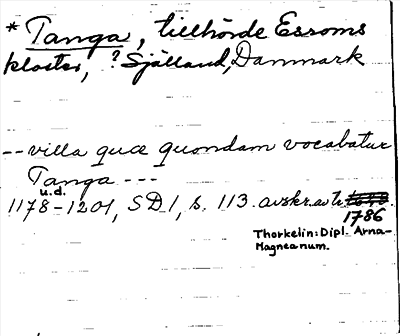 * Tanga, tillhörde Esroms
kloster, ? Sjælland, Danmark
-- villa quæ quondam vocabatur
Tanga ---
u.d.
1178-1201, SD 1, s. 113. avskr. av tr.
1786
Thorkelin: Dipl. Arna-
Magneanum.